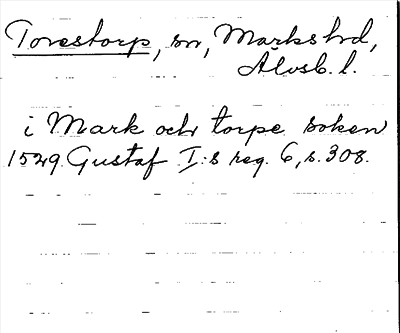 Torestorp, sn, Marks hd,
Älvsb. l.
i Mark och torpe soken
1529 Gustaf I:s reg. 6, s. 308.